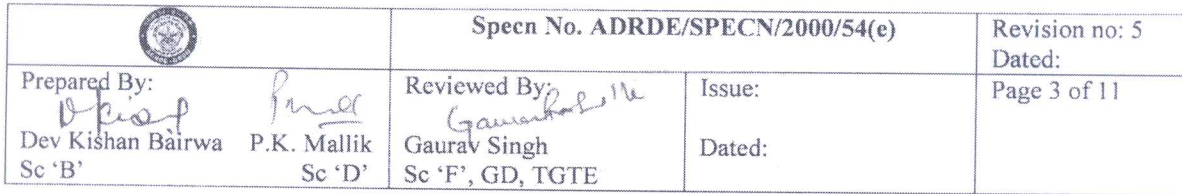 Specn No. ADRDE/SPECN/2000/54(e)
Revision no: 5
Dated:
Prepared By:
Dev Kishan Bairwa P.K. Mallik
Sc ‘B’ Sc ‘D’
Reviewed By:
Gaurav Singh
Sc ‘F’, GD, TGTE
Issue:
Dated:
Page 3 of 11